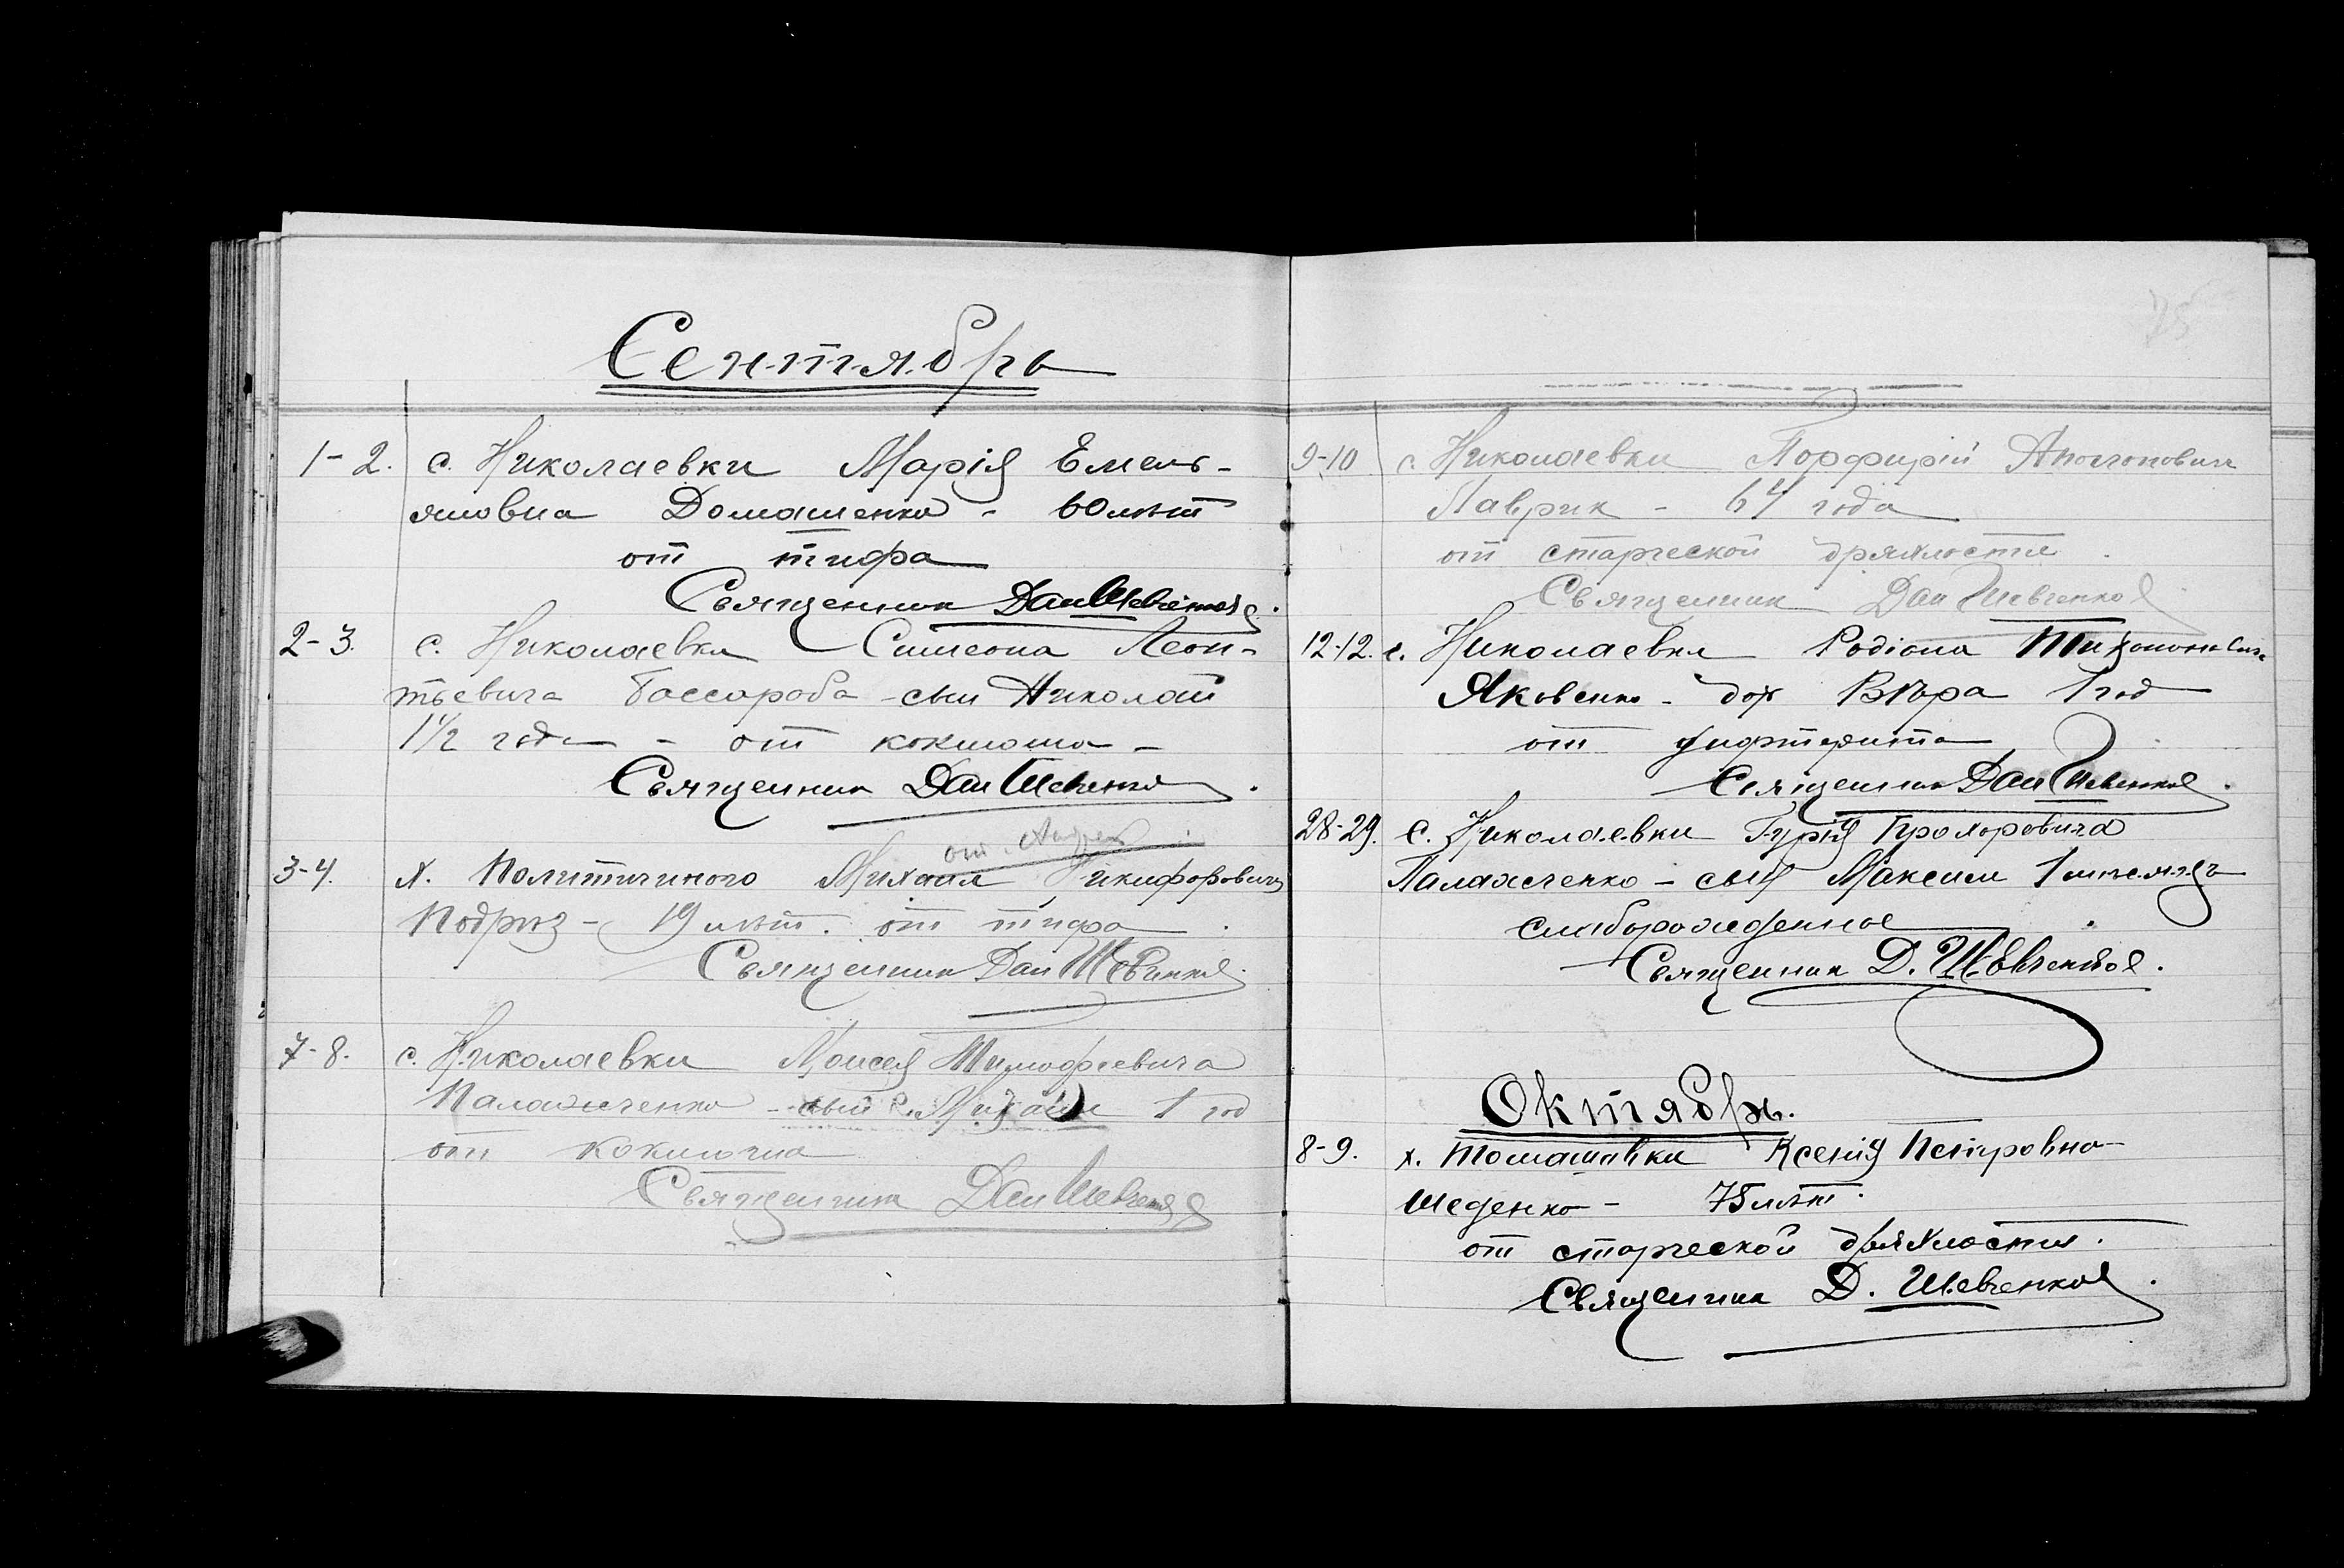 Сентябрь
1-2. с. Николаевки Марія Емель-
яновна Домашенко - 60 лѣт
от тифа
Священник Дан Шевченков.
2-3. с. Николаевки Симеона Леон-
тьевича Бассараба - сын Николай
1 1/2 года - от коклюша -
Священник Дан Шевченков.
от. Андрея
3-4. х. Политичного Михаил Никифорович
Подрѣз - 19 лѣт. от тифа.
Священник Дан Шевченков.
7-8. с. Николаевки Моисея Тимофеевича
Палажченко - сын Михаил 1 год
от коклюша
Священник Дан Шевченков
75
9-10 с. Николаевки Порфирій Аполонович
Лаврик - 64 года
от старческой дряхлости.
Священник Дан Шевченков
12-12. с. Николаевки Родіона Тихоновича
Яковенко - дох Вѣра 1 год
от дифтерита
Священник Дан Шевченков.
28-29. с. Николаевки Гурія Прохоровича
Палажченко - сын Максим 1 мѣсяцъ
слаборожденное.
Священник Д. Шевченков.
Октябрь.
8-9. х. Томашовки Ксенія Петровна
Шеденко - 75 лѣт.
от старческой дряхлости.
Священник Д. Шевченков.